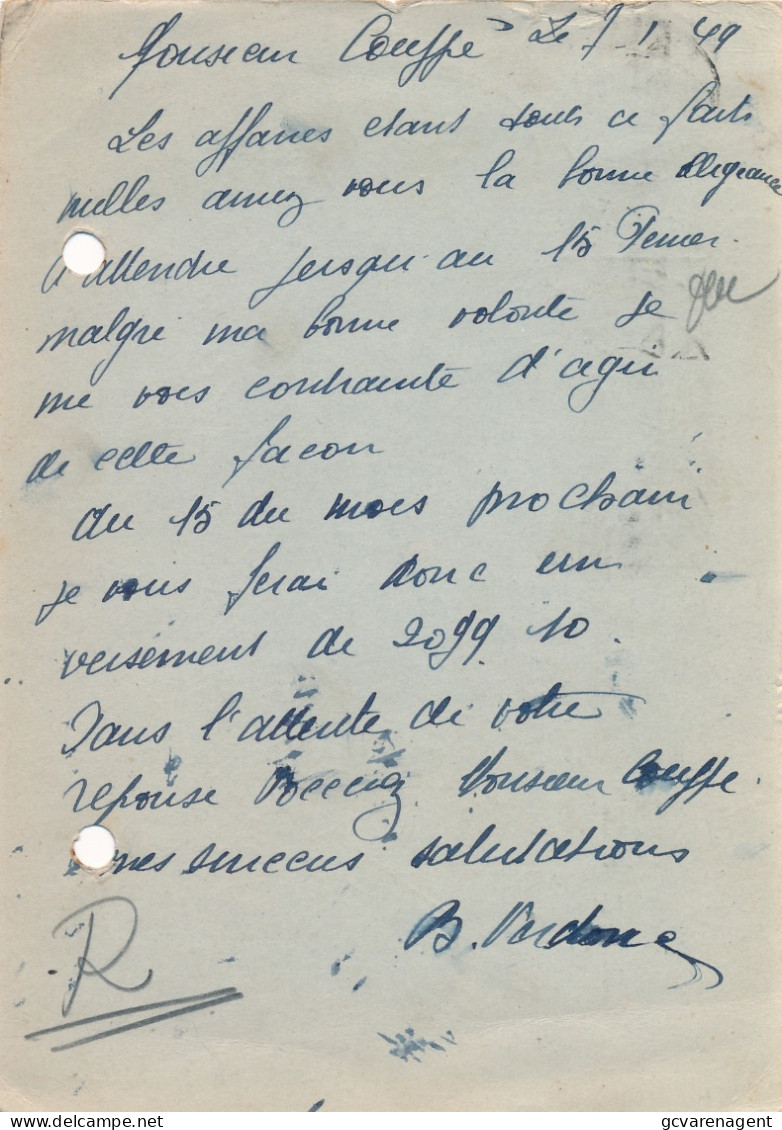 Monsieur Couffe Le 7-1 49
Les affaires etant tout a fait
nulles aurez vous la bonne obligeance
d'attendre jusqu'au 15 Fevrier.
malgré ma bonne volonté je
me vois contrainte d'agir
de cette facon
du 15 du mois prochain
je vous ferai donc un
versement de 2099.10.
Dans l'attente de votre
reponse Recevez Monsieur Couffe.
mes sinceres salutations
B.
R
gcvarenagent